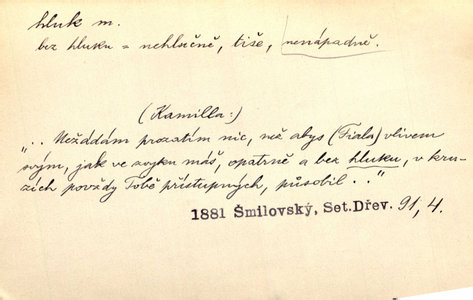 hluk m.
bez hluku = nehlučně, tiše, nenápadně.
(Kamilla:)
".. Nežádám prozatím nic, než abys (Fiala) vlivem
svým, jak ve zvyku máš, opatrně a bez hluku, v kru-
zích povždy Tobě přístupných, působil .."
1881 Šmilovský, Set.Dřev. 91, 4.